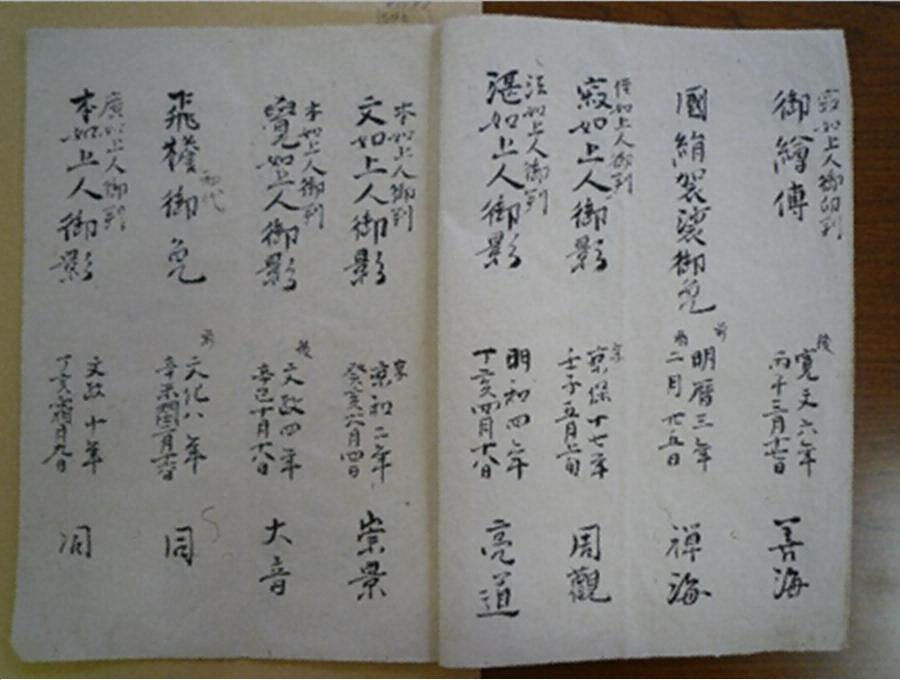 寂如上人御印判
御繪傳
後
寛文六年
丙午三月十七日
善海
國絹袈裟御免
前
明暦三年
二月廿五日
禅海
住如上人御判
寂如上人御影
享
保十七年
壬子五月上旬
周觀
法如上人御判
湛如上人御影
明和四年
丁亥四月十八日
亮道
本如上人御判
文如上人御影
享
和二年
癸亥六月四日
崇景
本如上人御判
覺如上人御影
後
文政四年
辛巳十月十八日
大音
初代
飛檐御免
前
文化八年
辛未閏二月
同
廣如上人御判
本如上人御影
文政十年
丁亥霜月九日
同